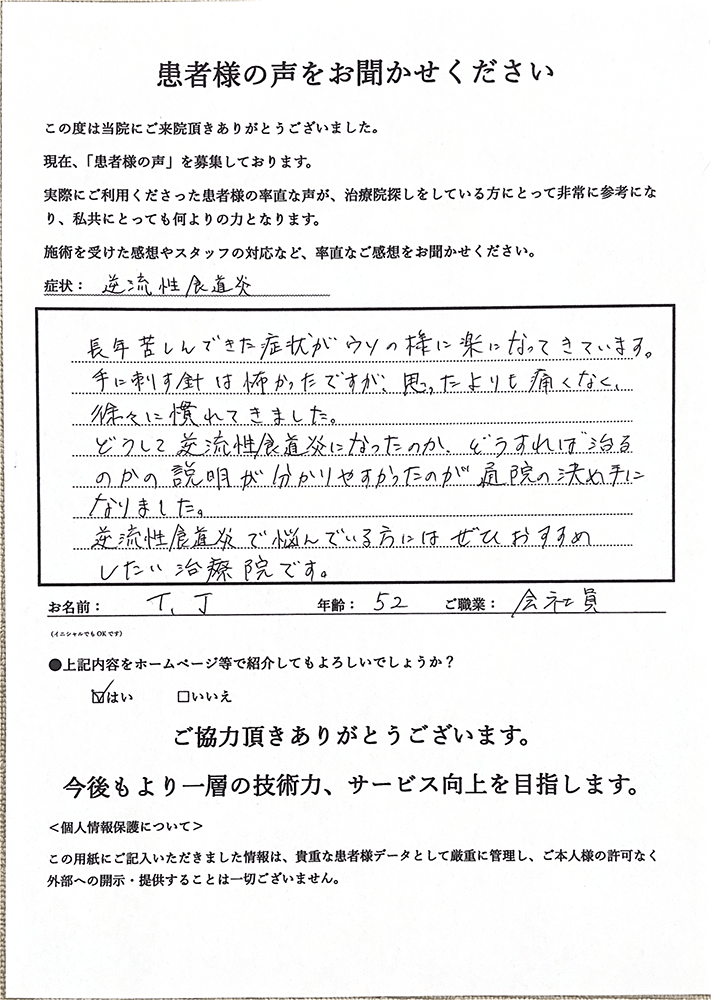 患者様の声をお聞かせください
この度は当院にご来院頂きありがとうございました。
現在、「患者様の声」を募集しております。
実際にご利用くださった患者様の率直な声が、治療院探しをしている方にとって非常に参考にな
り、私共にとっても何よりの力となります。
施術を受けた感想やスタッフの対応など、率直なご感想をお聞かせください。
症状： 逆流性食道炎
長年苦しんできた症状がウソの様に楽になってきています。
手に刺す針は怖かったですが、思ったよりも痛くなく、
徐々に慣れてきました。
どうして逆流性食道炎になったのか、どうすれば治る
のかの説明が分かりやすかったのが通院の決め手に
なりました。
逆流性食道炎で悩んでいる方にはぜひおすすめ
したい治療院です。
お名前： T.J 年齢： 52 ご職業： 会社員
（イニシャルでもOKです）
●上記内容をホームページ等で紹介してもよろしいでしょうか？
☑はい □いいえ
ご協力頂きありがとうございます。
今後もより一層の技術力、サービス向上を目指します。
＜個人情報保護について＞
この用紙にご記入いただきました情報は、貴重な患者様データとして厳重に管理し、ご本人様の許可なく
外部への開示・提供することは一切ございません。